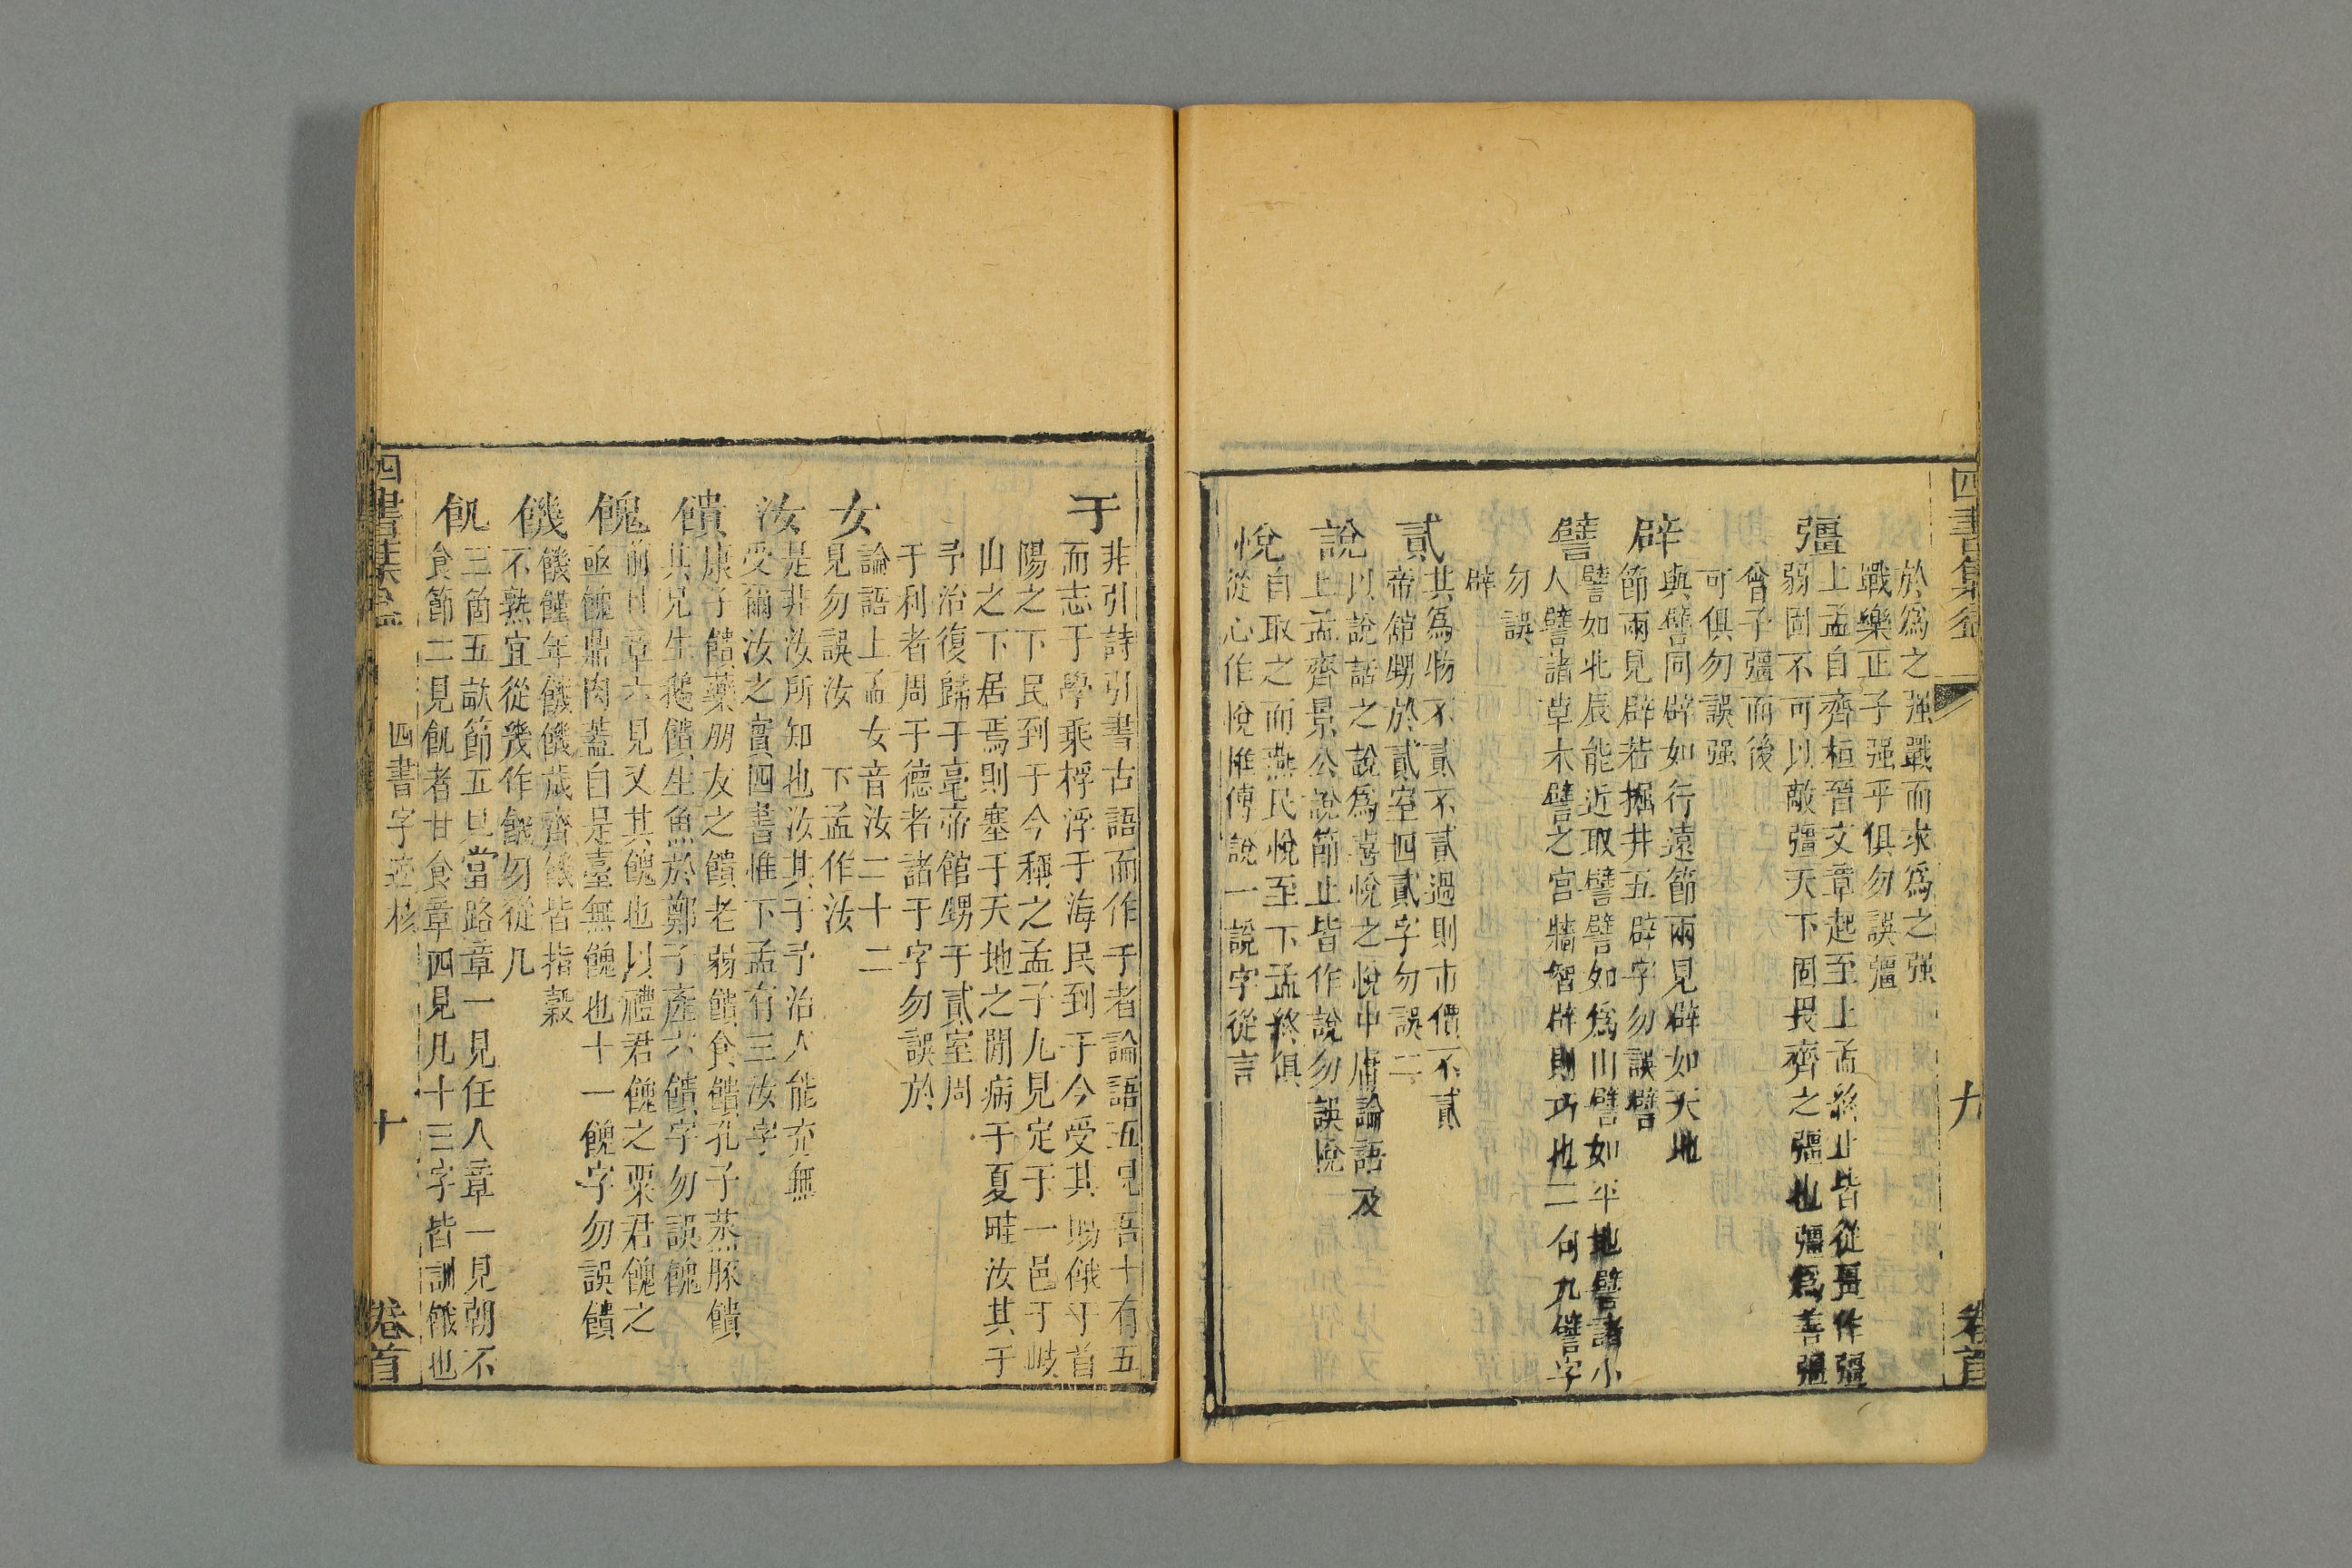 四書集益
九
卷首
於爲之强戰而求爲之强
戰樂正子强乎俱勿誤彊
彊
上孟自齊桓晉文章起至上孟終止皆從畺作彊
弱固不可以敵彊天下固畏齊之彊也彊爲善彊
曾子彊而後
可俱勿誤强
辟
與譬同辟如行遠節兩見辟如天地
節兩見辟若掘井五辟字勿誤譬
譬
譬如北辰能近取譬譬如爲山譬如平地譬諸小
人譬諸草木譬之宮牆智辟則巧也二句九譬字
勿誤
辟
貳
其爲物不貳不貳過則市價不貳
帝舘甥於貳室四貳字勿誤二
說
以說話之說爲喜悅之悅中庸論語及
上孟齊景公說節止皆作說勿誤悅
悅
自取之而燕民悅至下孟終俱
從心作悅惟傳說一說字從言
于
非引詩引書古語而作于者論語五見吾十有五
而志于學乘桴浮于海民到于今受其賜餓于首
陽之下民到于今稱之孟子九見定于一邑于岐
山之下居焉則塞于天地之閒病于夏畦汝其于
予治復歸于亳帝館甥于貳室周
于利者周于德者諸于字勿誤於
女
論語上孟女音汝二十二
見勿誤汝 下孟作汝
汝
是非汝所知也汝其于予治人能充無
受爾汝之實四書惟下孟有三汝字
饋
康子饋藥朋友之饋老弱饋食饋孔子蒸豚饋
其兄生鵝饋生魚於鄭子產六饋字勿誤餽
餽
前日章六見又其餽也以禮君餽之粟君餽之
亟餽鼎肉蓋自是臺無餽也十一餽字勿誤饋
饑
饑饉年饑饑歲齊饑皆指穀
不熟宜從幾作饑勿從几
飢
三箇五畝節五見當路章一見任人章一見朝不
食節二見飢者甘食章四見凡十三字皆訓餓也
四書字
四書集益
十
卷首